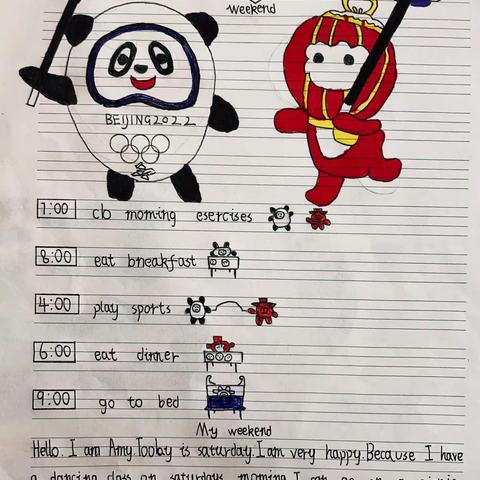 weekend
BEIJING2022
7:00 cb morning esercises
8:00 eat breakfast
4:00 play sports
6:00 eat dinner
9:00 go to bed
My weekend
Hello. I am Amy.Tooby is saturday.I am very happy.Because I have
a dancing class on saturdays morning.I can go on a picnic